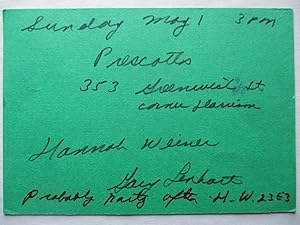 Sunday May 1 3 PM
Prescotts
353 Greenwich St
corner Harrison
Hannah Weiner
Gary Lenhart
Probably Party after H.W. 2353